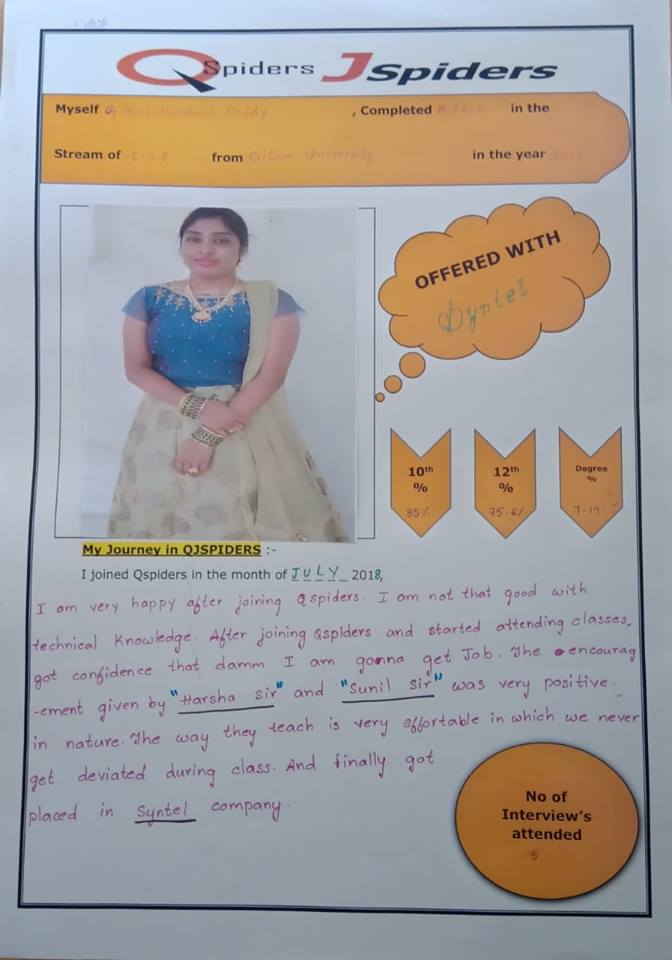 QSpiders JSpiders
Myself G. Hari chandana Reddy , Completed B.Tech in the
Stream of C.S.E from Gitam University in the year
OFFERED WITH
Syntel
10th % 85%
12th % 75.6%
Degree % 7.19
My Journey in QJSPIDERS :-
I joined Qspiders in the month of JULY 2018,
I am very happy after joining Qspiders. I am not that good with
technical Knowledge. After joining Qspiders and started attending classes,
got confidence that damm I am gonna get Job. The encourag
-ement given by "Harsha Sir" and "Sunil Sir" was very positive
in nature. The way they teach is very effortable in which we never
get deviated during class. And finally got
placed in Syntel company.
No of
Interview's
attended
5